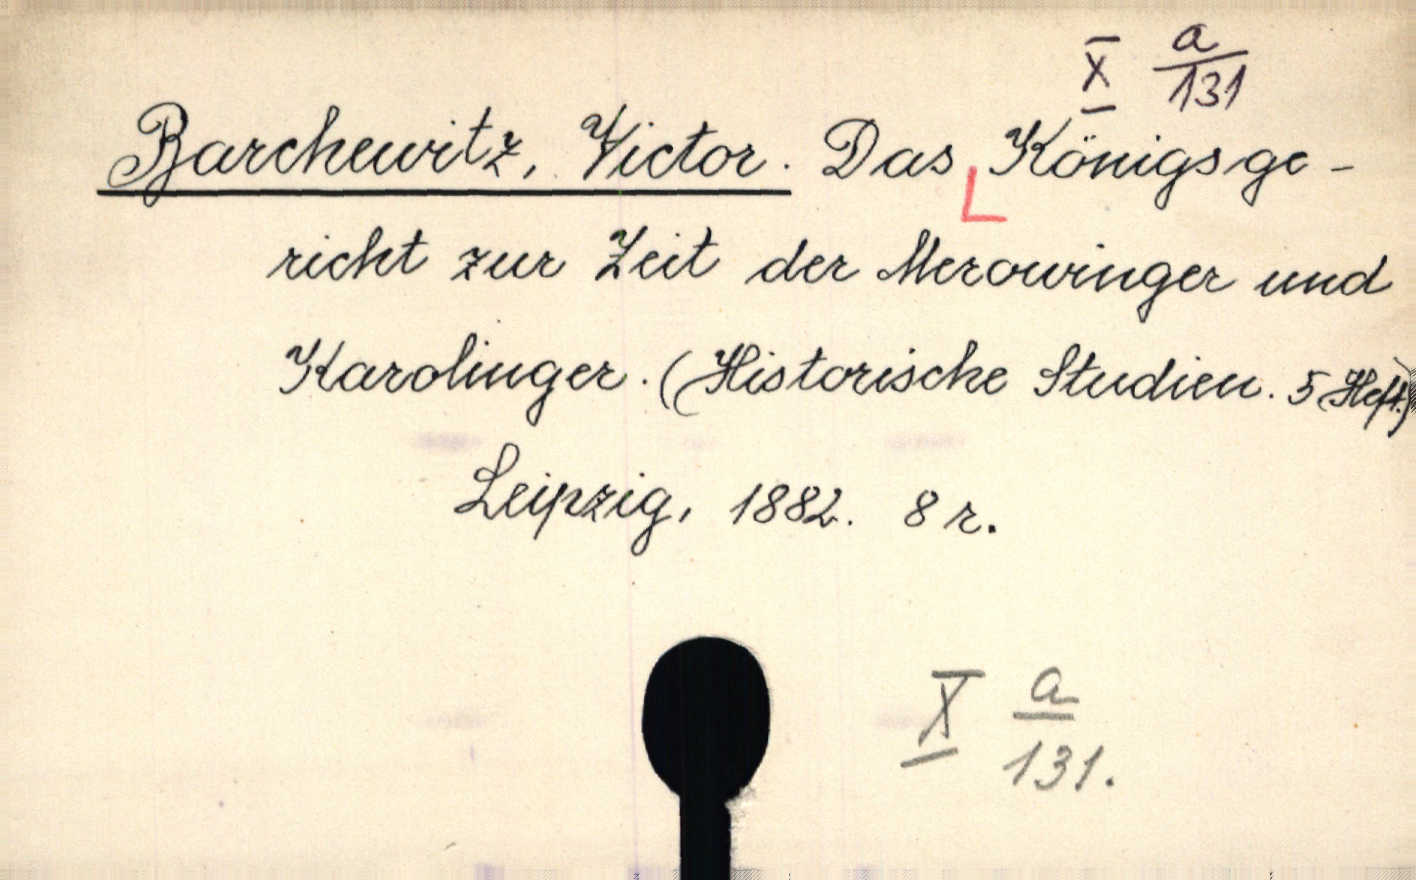 X a/131
Barchewitz, Victor. Das Königsge-
richt zur Zeit der Merowinger und
Karolinger. (Historische Studien. 5 Heft.)
Leipzig, 1882. 8 r.
X a/131.